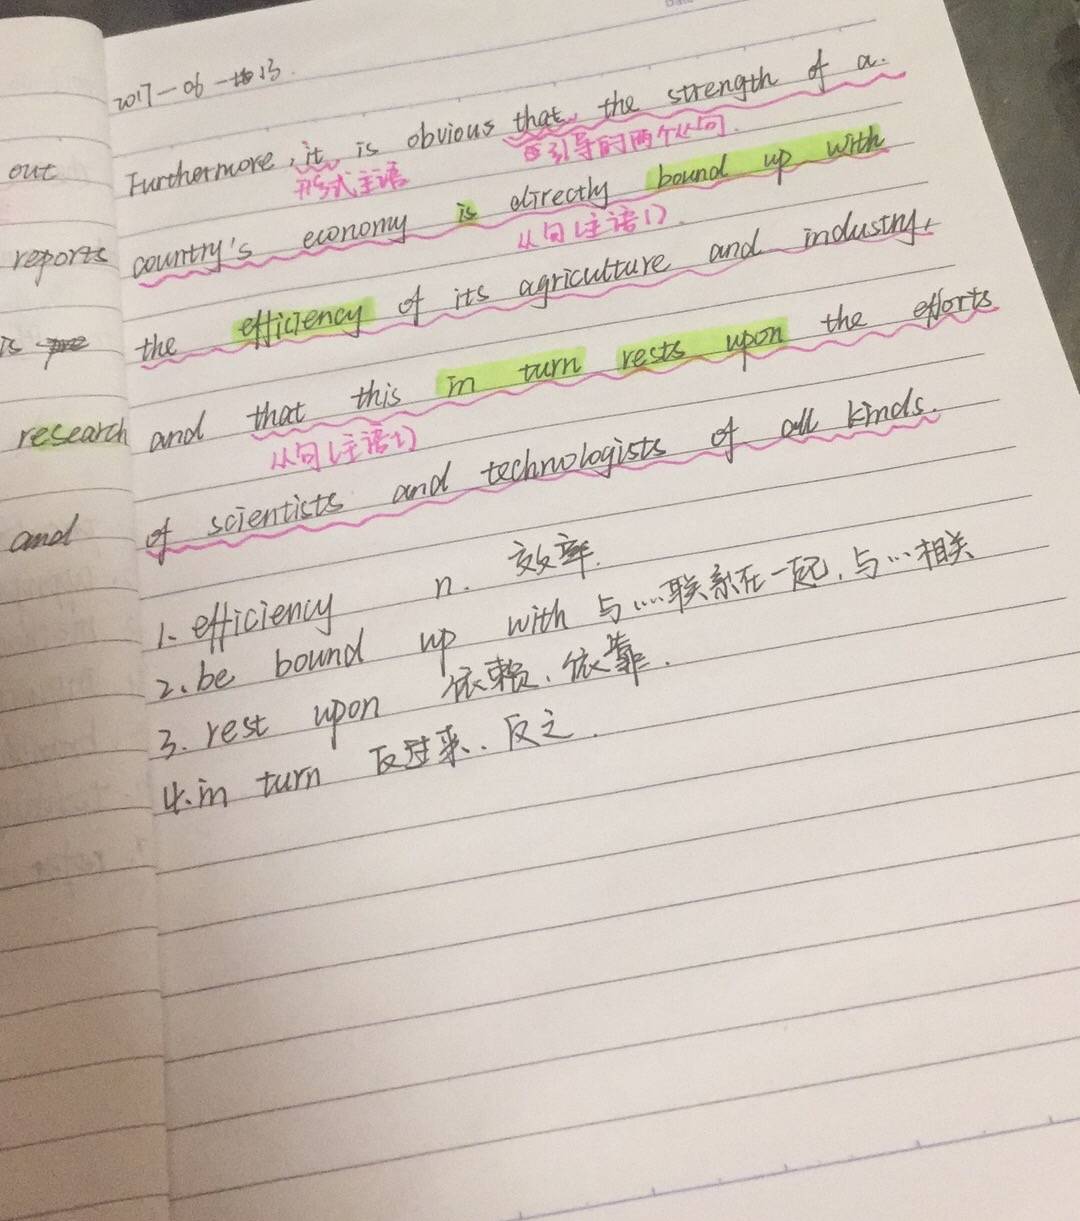 out
reports
is
research
and
2017-06-13.
Furthermore, it is obvious that the strength of a
形式主语
引导的两个从句
country's economy is directly bound up with
从句(主语1)
the efficiency of its agriculture and industry,
and that this in turn rests upon the efforts
从句(主语2)
of scientists and technologists of all kinds.
1. efficiency n. 效率.
2. be bound up with 与……联系在一起, 与…相关
3. rest upon 依赖、依靠.
4. in turn 反过来、反之.